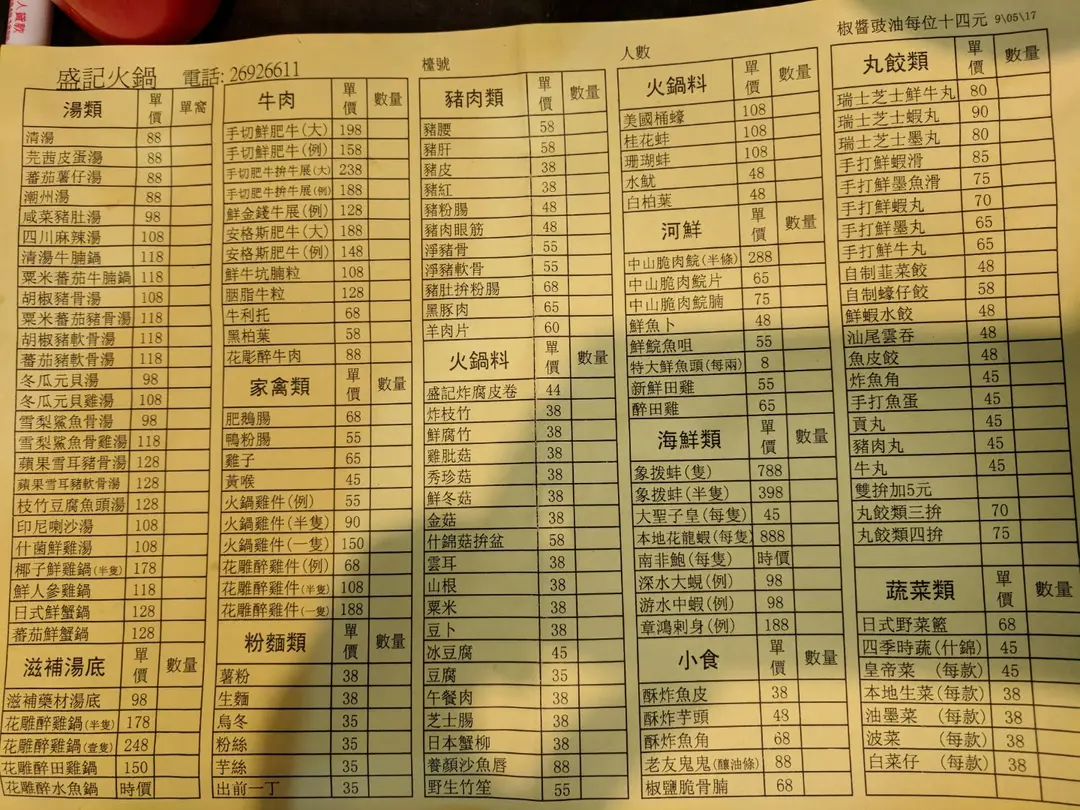 人數
椒醬豉油每位十四元 9\05\17
盛記火鍋 電話: 26926611
檯號
人數
湯類 單價 單窩
清湯 88
芫茜皮蛋湯 88
蕃茄薯仔湯 88
潮州湯 88
咸菜豬肚湯 98
四川麻辣湯 108
清湯牛腩鍋 118
粟米蕃茄牛腩鍋 118
胡椒豬骨湯 108
粟米蕃茄豬骨湯 118
胡椒豬軟骨湯 118
蕃茄豬軟骨湯 118
冬瓜元貝湯 98
冬瓜元貝雞湯 108
雪梨鯊魚骨湯 98
雪梨鯊魚骨雞湯 118
蘋果雪耳豬骨湯 128
蘋果雪耳豬軟骨湯 128
枝竹豆腐魚頭湯 128
印尼喇沙湯 108
什菌鮮雞湯 108
椰子鮮雞鍋(半隻) 178
鮮人參雞鍋 118
日式鮮蟹鍋 128
蕃茄鮮蟹鍋 128
滋補湯底 單價 數量
滋補藥材湯底 98
花雕醉雞鍋(半隻) 178
花雕醉雞鍋(壹隻) 248
花雕醉田雞鍋 150
花雕醉水魚鍋 時價
牛肉 單價 數量
手切鮮肥牛(大) 198
手切鮮肥牛(例) 158
手切肥牛拚牛展(大) 238
手切肥牛拚牛展(例) 188
鮮金錢牛展(例) 128
安格斯肥牛(大) 188
安格斯肥牛(例) 148
鮮牛坑腩粒 108
胭脂牛粒 128
牛利托 68
黑柏葉 58
花彫醉牛肉 88
家禽類 單價 數量
肥鵝腸 68
鴨粉腸 55
雞子 65
黃喉 45
火鍋雞件(例) 55
火鍋雞件(半隻) 90
火鍋雞件(一隻) 150
花雕醉雞件(例) 68
花雕醉雞件(半隻) 108
花雕醉雞件(一隻) 188
粉麵類 單價 數量
薯粉 38
生麵 38
烏冬 35
粉絲 35
芋絲 35
出前一丁 35
豬肉類 單價 數量
豬腰 58
豬肝 58
豬皮 38
豬紅 38
豬粉腸 48
豬肉眼筋 48
淨豬骨 55
淨豬軟骨 55
豬肚拚粉腸 68
黑豚肉 65
羊肉片 60
火鍋料 單價 數量
盛記炸腐皮卷 44
炸枝竹 38
鮮腐竹 38
雞肶菇 38
秀珍菇 38
鮮冬菇 38
金菇 38
什錦菇拚盆 58
雲耳 38
山根 38
粟米 38
豆卜 38
冰豆腐 45
豆腐 35
午餐肉 38
芝士腸 38
日本蟹柳 38
養顏沙魚唇 88
野生竹笙 55
火鍋料 單價 數量
美國桶蠔 108
桂花蚌 108
珊瑚蚌 108
水魷 48
白柏葉 48
河鮮 單價 數量
中山脆肉鯇(半條) 288
中山脆肉鯇片 65
中山脆肉鯇腩 75
鮮魚卜 48
鮮鯇魚咀 55
特大鮮魚頭(每兩) 8
新鮮田雞 55
醉田雞 65
海鮮類 單價 數量
象拔蚌(隻) 788
象拔蚌(半隻) 398
大聖子皇(每隻) 45
本地花龍蝦(每隻) 888
南非鮑(每隻) 時價
深水大蜆(例) 98
游水中蝦(例) 98
章鴻剌身(例) 188
小食 單價 數量
酥炸魚皮 38
酥炸芋頭 48
酥炸魚角 68
老友鬼鬼(釀油條) 88
椒鹽脆骨腩 68
丸餃類 單價 數量
瑞士芝士鮮牛丸 80
瑞士芝士蝦丸 90
瑞士芝士墨丸 80
手打鮮蝦滑 85
手打鮮墨魚滑 75
手打鮮蝦丸 70
手打鮮墨丸 65
手打鮮牛丸 65
自制韮菜餃 48
自制蠔仔餃 58
鮮蝦水餃 48
汕尾雲吞 48
魚皮餃 48
炸魚角 45
手打魚蛋 45
貢丸 45
豬肉丸 45
牛丸 45
雙拚加5元
丸餃類三拚 70
丸餃類四拚 75
蔬菜類 單價 數量
日式野菜籃 68
四季時蔬(什錦) 45
皇帝菜 (每款) 45
本地生菜(每款) 38
油墨菜 (每款) 38
波菜 (每款) 38
白菜仔 (每款) 38